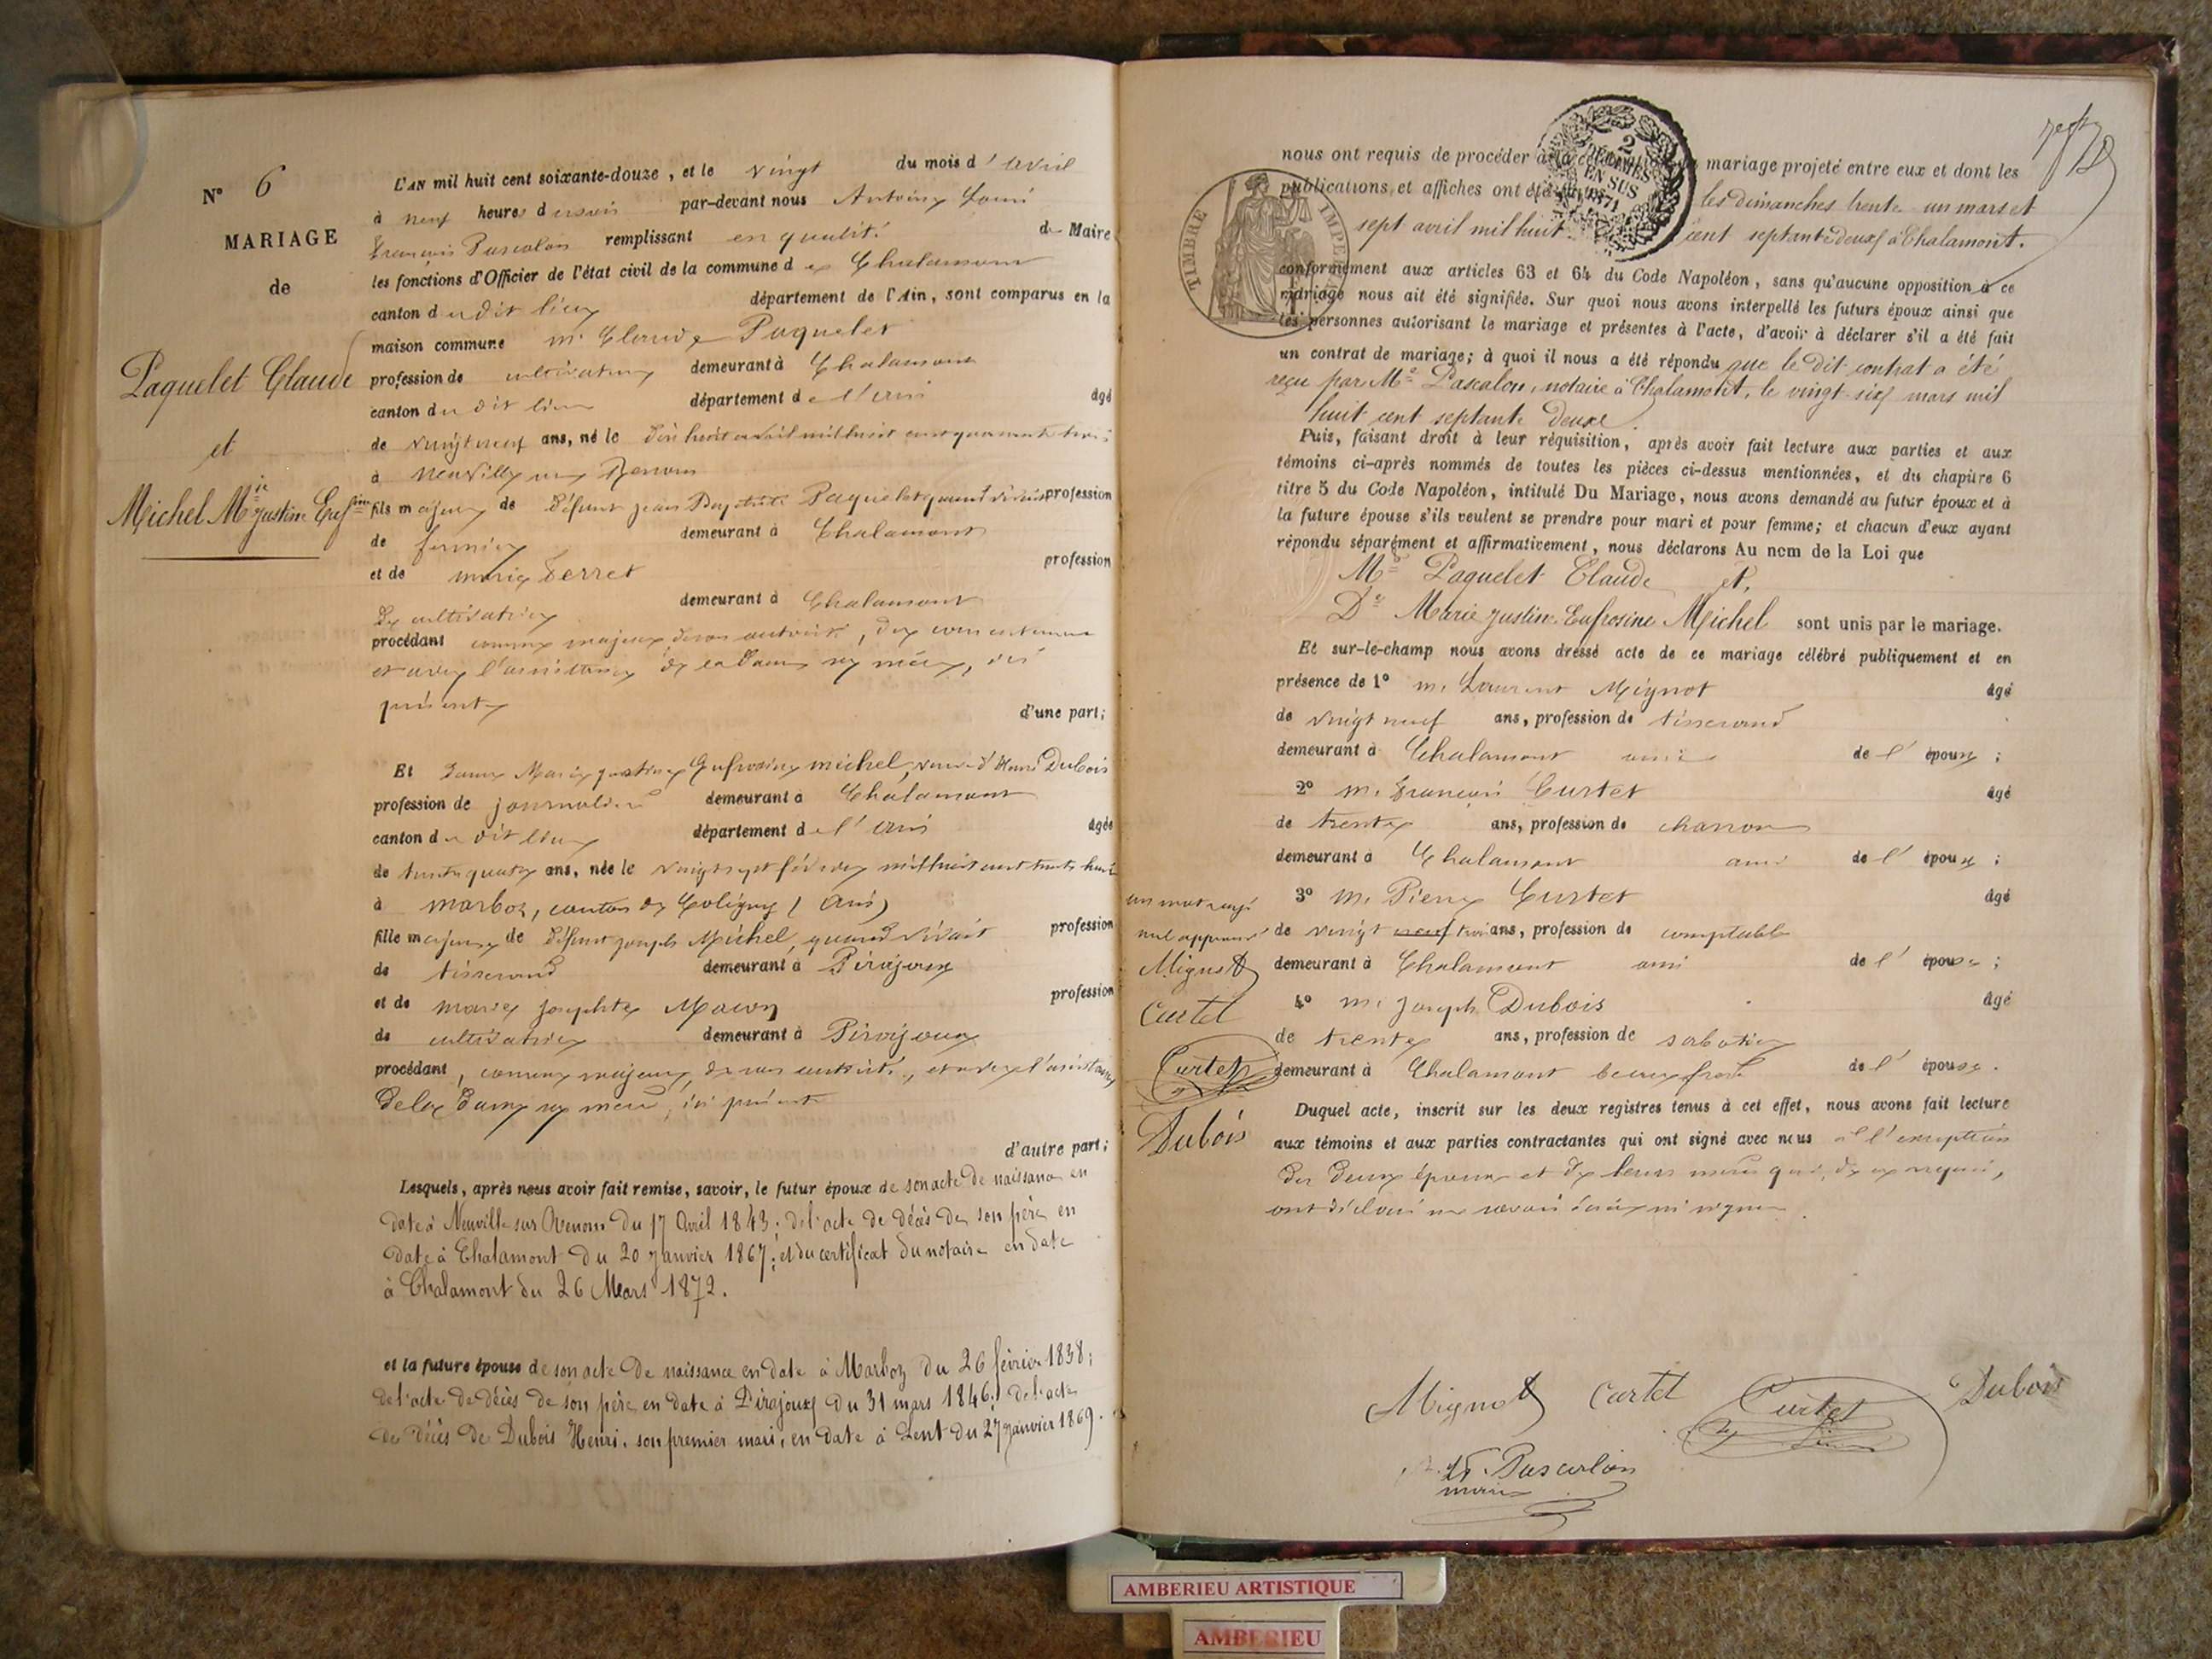 N° 6
MARIAGE
de
Paquelet Claude
et
Michel Mie Justine Eufsine
L'AN mil huit cent soixante-douze, et le vingt du mois d'avril
à neuf heures du soir par-devant nous Antoine Louis
François Pascalon remplissant en qualité de Maire
les fonctions d'Officier de l'état civil de la commune de Chalamont
canton du dit lieu département de l'Ain, sont comparus en la
maison commune m. Claude Paquelet
profession de cultivateur demeurant à Chalamont
canton du dit lieu département de l'Ain âgé
de vingt neuf ans, né le dix huit avril mil huit cent quarante trois
à Neuville sur Renom
fils majeur de défunt Jean Baptiste Paquelet quand vivait profession
de fermier demeurant à Chalamont
et de Marie Perret profession
de cultivatrice demeurant à Chalamont
procédant comme majeur de son autorité, du consentement
et avec l'assistance de la dame sa mère, ici
présente d'une part;
Et dame Marie Justine Eufrosine Michel, veuve d'Henri Dubois
profession de journalière demeurant à Chalamont
canton du dit lieu département de l'Ain âgée
de trente quatre ans, née le vingt sept février mil huit cent trente huit
à Marboz, canton de Coligny (Ain)
fille majeure de défunt Joseph Michel, quand vivait profession
de tisserand demeurant à Pirajoux
et de Marie Josephte profession
de cultivatrice demeurant à Pirajoux
procédant, comme majeure, de son autorité, et avec l'assistance
de la dame sa mère, ici présente
d'autre part;
Lesquels, après nous avoir fait remise, savoir, le futur époux de son acte de naissance en
date à Neuville sur Renom du 17 Avril 1843; de l'acte de décès de son père en
date à Chalamont du 20 Janvier 1867; et du certificat du notaire en date
à Chalamont du 26 Mars 1872.
et la future épouse de son acte de naissance en date à Marboz du 26 février 1838;
de l'acte de décès de son père en date à Pirajoux du 31 mars 1846; de l'acte
de décès de Dubois Henri, son premier mari, en date à Lent du 27 janvier 1869.
nous ont requis de procéder à la célébration du mariage projeté entre eux et dont les
publications et affiches ont été faites les dimanches trente un mars et
sept avril mil huit cent septante deux à Chalamont.
TIMBRE IMPERIAL
2 DÉCIMES EN SUS 1871
conformément aux articles 63 et 64 du Code Napoléon, sans qu'aucune opposition à ce
mariage nous ait été signifiée. Sur quoi nous avons interpellé les futurs époux ainsi que
les personnes autorisant le mariage et présentes à l'acte, d'avoir à déclarer s'il a été fait
un contrat de mariage; à quoi il nous a été répondu que le dit contrat a été
reçu par Me Pascalon, notaire à Chalamont, le vingt six mars mil
huit cent septante deux.
Puis, faisant droit à leur réquisition, après avoir fait lecture aux parties et aux
témoins ci-après nommés de toutes les pièces ci-dessus mentionnées, et du chapitre 6
titre 5 du Code Napoléon, intitulé Du Mariage, nous avons demandé au futur époux et à
la future épouse s'ils veulent se prendre pour mari et pour femme; et chacun d'eux ayant
répondu séparément et affirmativement, nous déclarons Au nom de la Loi que
Mr Paquelet Claude et,
De Marie Justine Eufrosine Michel sont unis par le mariage.
Et sur-le-champ nous avons dressé acte de ce mariage célébré publiquement et en
présence de 1° m. Laurent Mignot âgé
de vingt neuf ans, profession de tisserand
demeurant à Chalamont ami de l'époux;
2° m. François Curtet âgé
de trente ans, profession de charron
demeurant à Chalamont ami de l'époux;
3° m. Pierre Curtet âgé
de vingt neuf trois ans, profession de comptable
demeurant à Chalamont ami de l'épouse;
4° m. Joseph Dubois âgé
de trente ans, profession de sabotier
demeurant à Chalamont beau frère de l'épouse.
un mot rayé
nul approuvé
Mignot
Curtet
Curtet
Dubois
Duquel acte, inscrit sur les deux registres tenus à cet effet, nous avons fait lecture
aux témoins et aux parties contractantes qui ont signé avec nous à l'exception
des deux époux et de leurs mères qui, de ce requis,
ont déclaré ne savoir écrire ni signer.
Mignot Curtet Curtet Dubois
Pascalon
maire
AMBERIEU ARTISTIQUE
AMBERIEU